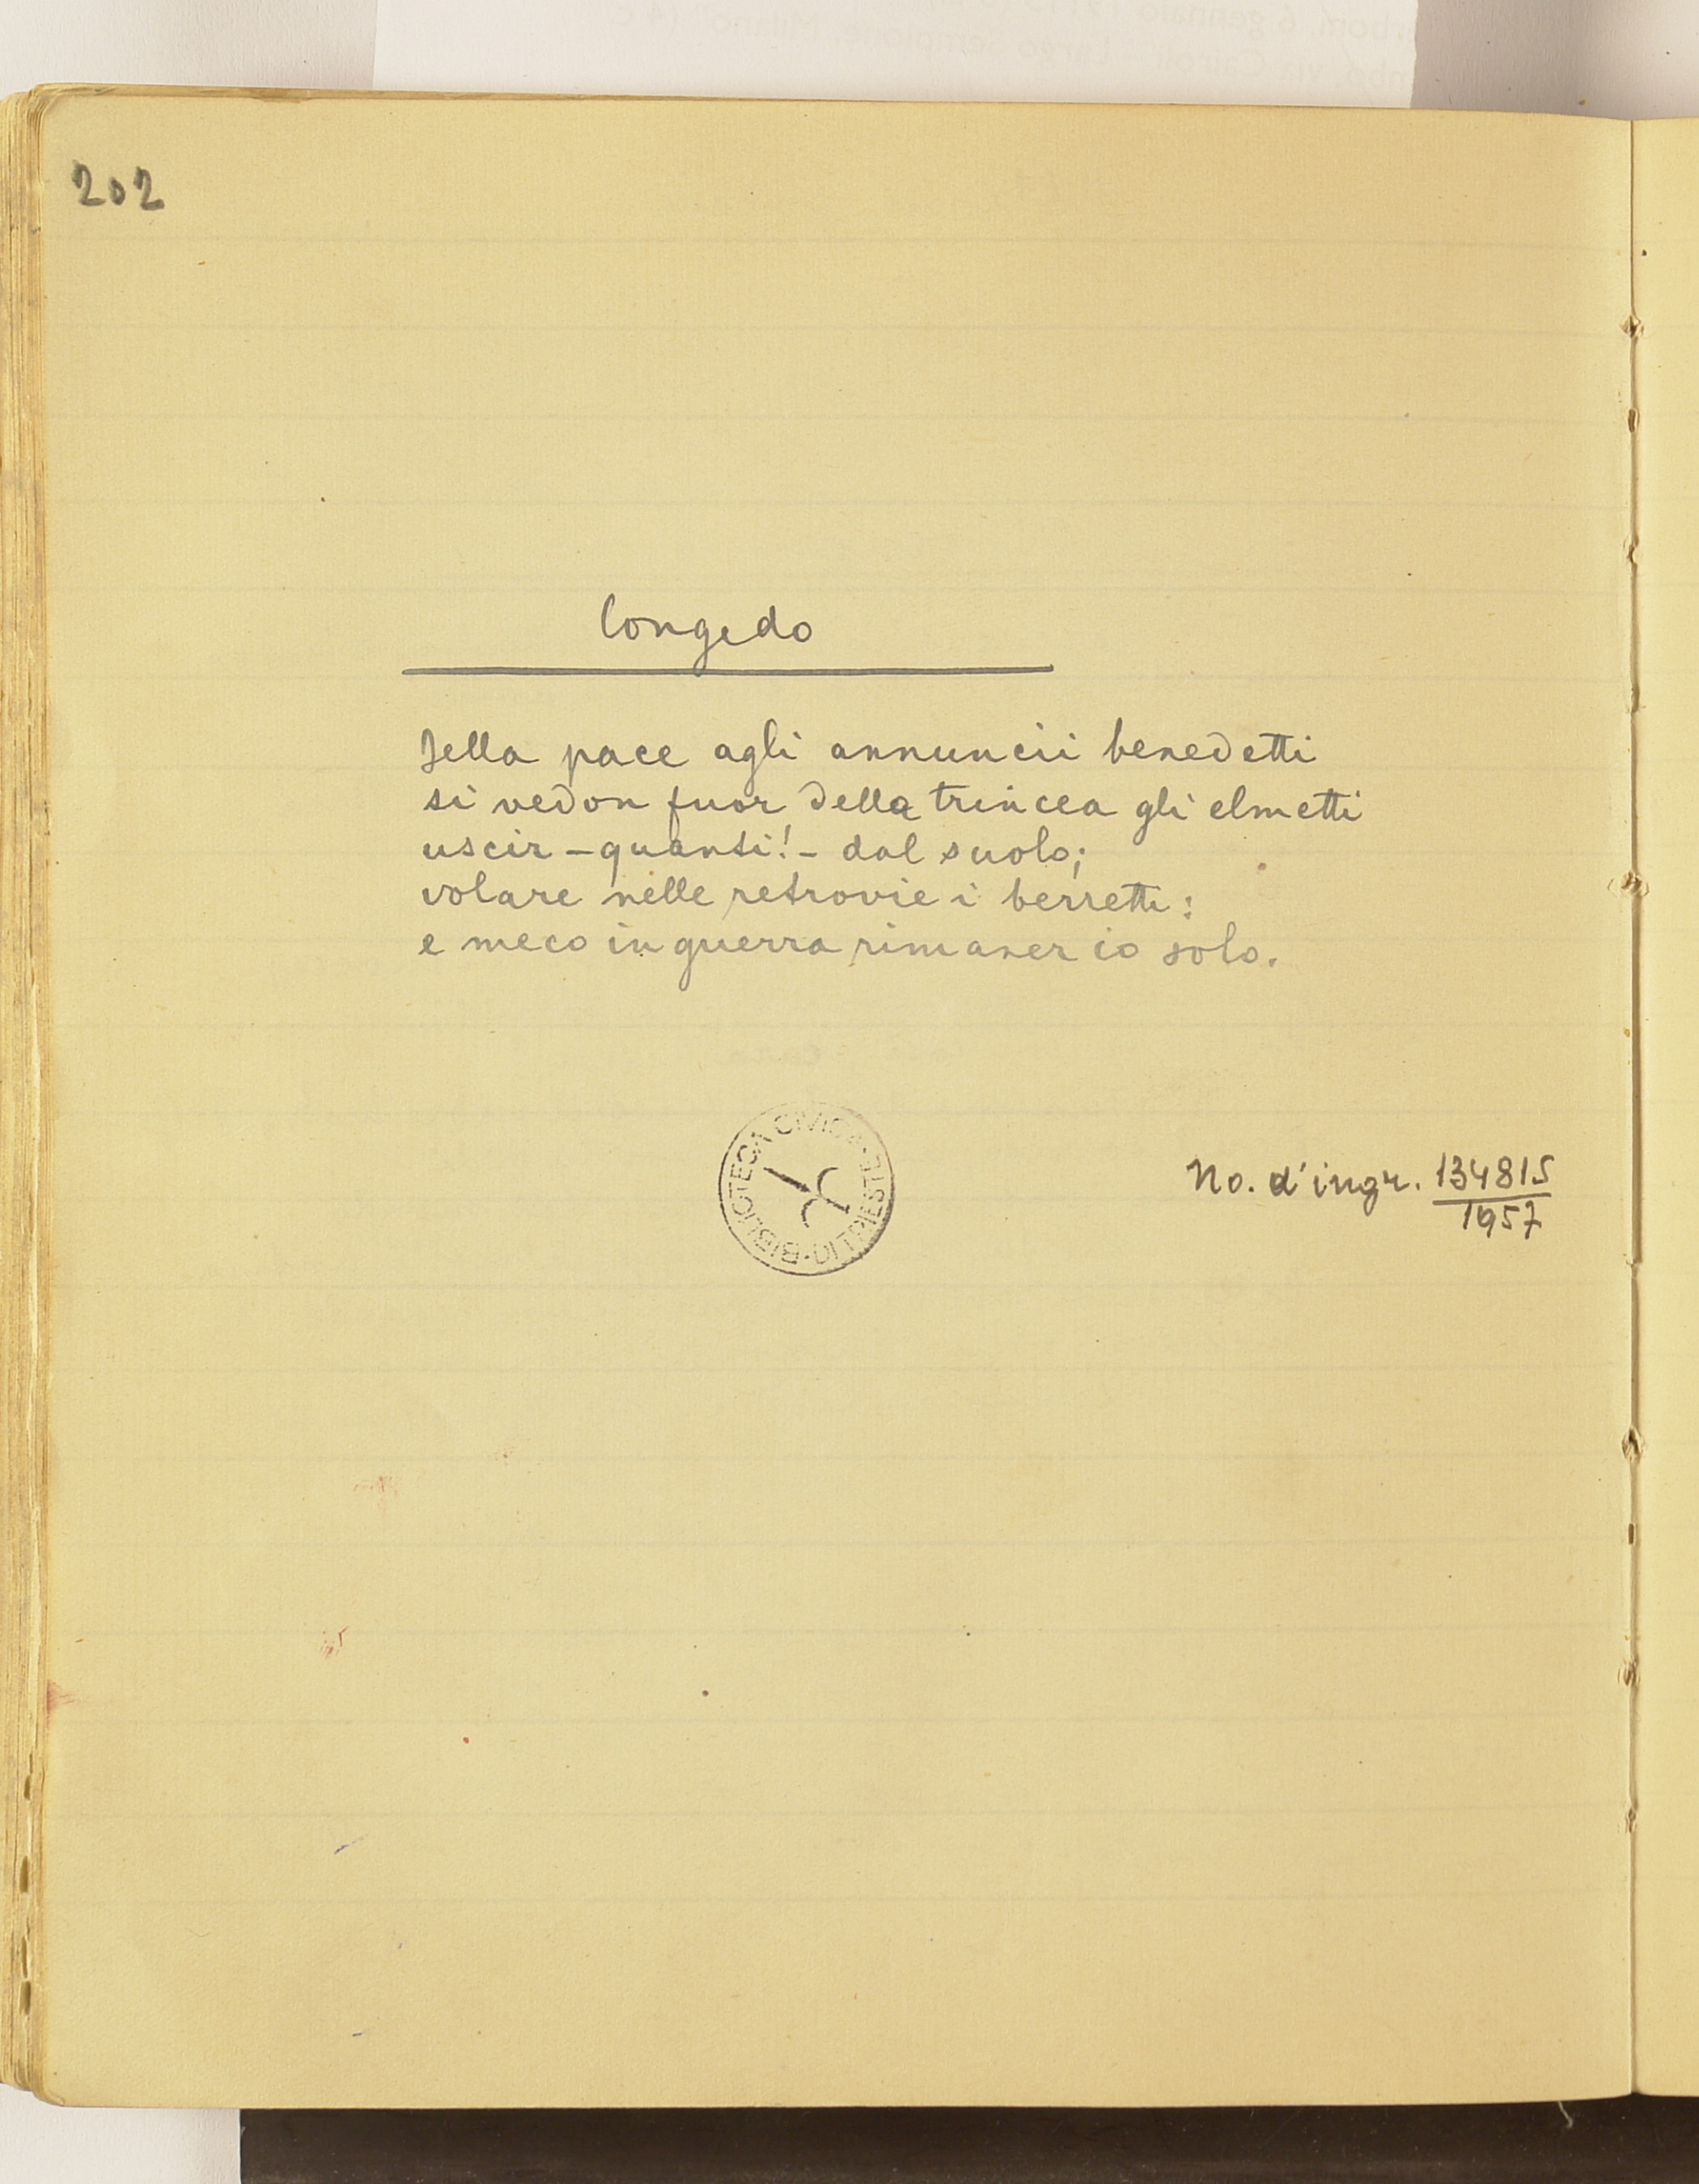 202
Congedo
Della pace agli annuncii benedetti
si vedon fuor della trincea gli elmetti
uscir - quanti! - dal suolo;
volare nelle retrovie i berretti:
e meco in guerra rimaner io solo.
BIBLIOTECA CIVICA · TRIESTE ·
No. d'ingr. 134815
1957